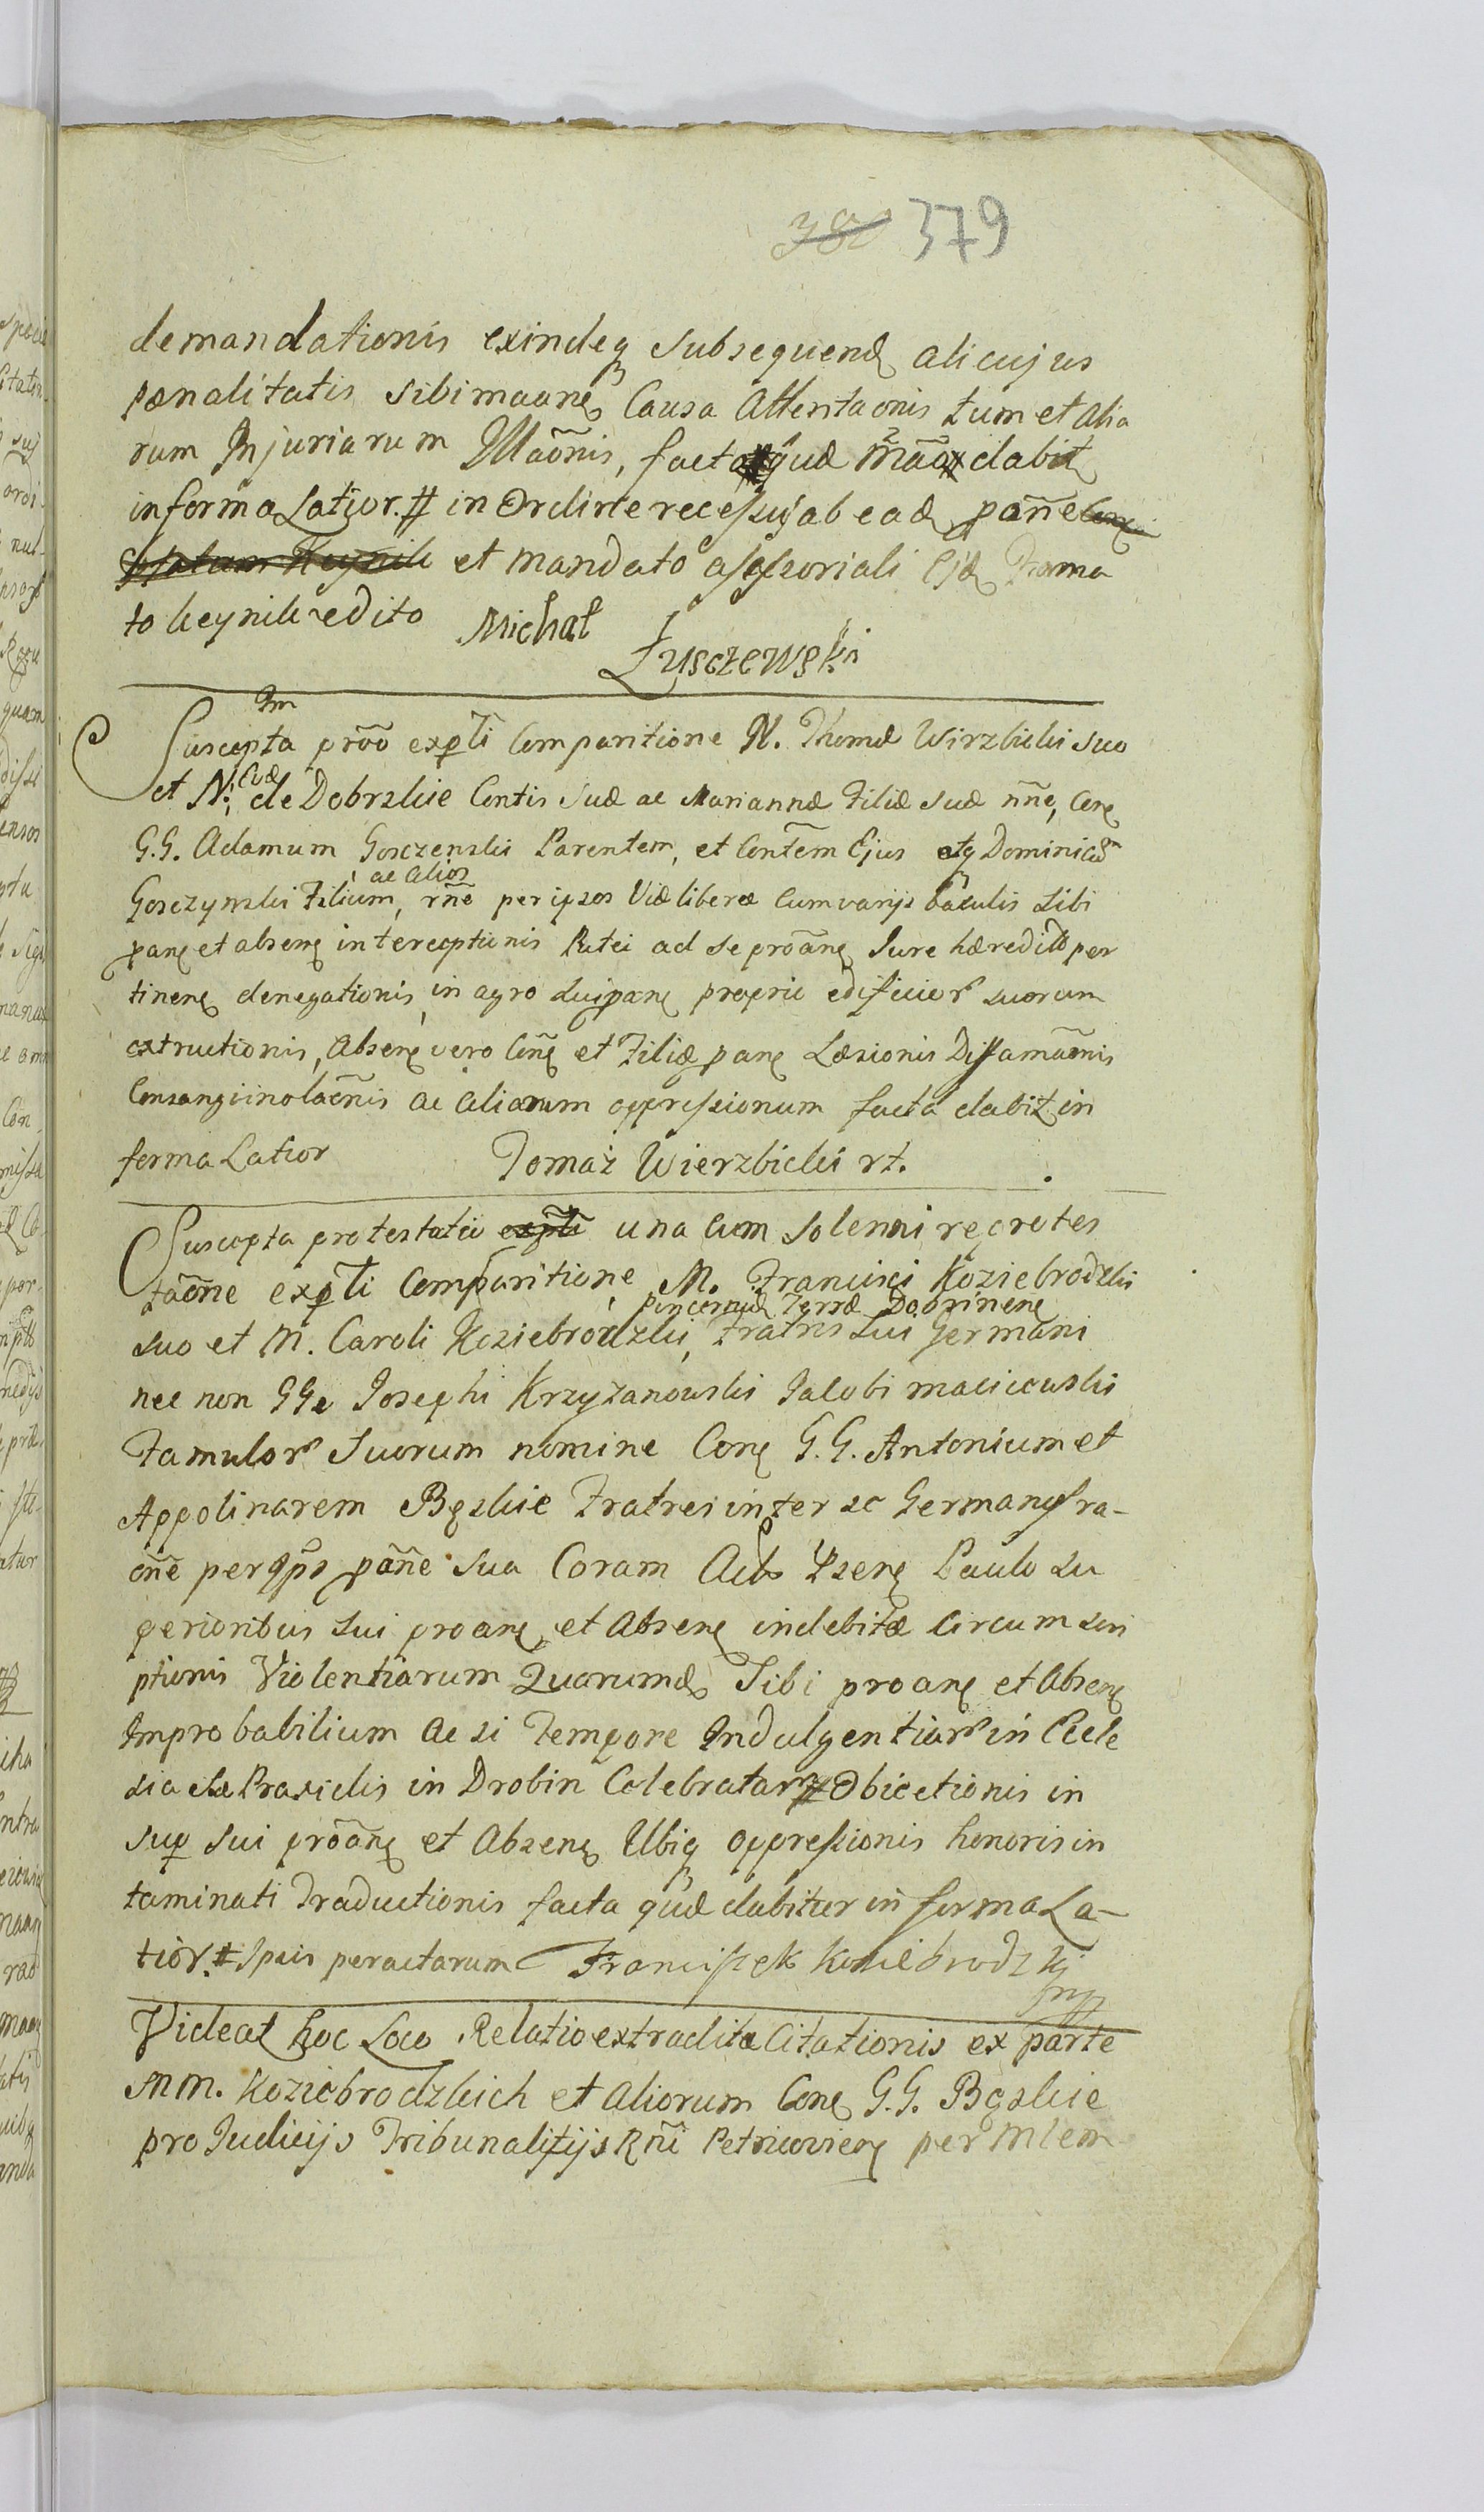 379
demandationis exindeq subsequend alicujus
pœnalitatis sibimaane Causa Attentaonis tum et alia
rum Injuriarum Illaõnis, facta quæ dabit
in forma Latior. # in Ordine recessus ab ead pañe
et mandato assessoriali Ejd
to edito Michał
Łysczewski
Im
Suscepta prõo exp̃ti Comparitione N. Thomæ Wirzbicki suo
Evæ
et N. de Dobrzkie Contis Suæ ac Mariannæ Filiæ suæ ñne, Cone
G.G. Adamum Gosczenski Parentem, et Contẽm Ejus atq Dominicũm
ac alios
Gosczynski Filium, rñe per ipsos Viæ liberæ cum varijs baculis sibi
pane et absene interceptionis Putei ad se proãne Jure hæreditõ per
tinene denegationis, in agro sui pane proprio edificior suorum
extructionis, Absene vero Cone et Filiæ pane Læsionis Diffamaõnis
Consangvinolaõnis ac aliarum oppressionum facta dabit in
forma Latior Tomaż Wierzbicki rt.
Suscepta protestatio una cum solenni reprotes
taõne exp̃ti Comparitione M. Francisci Koziebrodzki
pincernæ Terræ Dobrinene
suo et M. Caroli Koziebrodzki, Fratris sui Germani
nec non GGe Josephi Krzyżanowski Jacobi maciiewski
Famulor Suorum nomine Cone G.G. Antonium et
Appolinarem Bęskie Fratres inter se Germanos ra-
oñe per ip̃s pañe sua Coram Actis Psene Paulo su
perioribus sui proane et Absene indebitæ Circumscri
ptionis Violentiarum Quarumd Sibi proane et Absene
Improbabilium ac si Tempore Indulgentiar in Eccle
sia in Drobin Celebratar # Obiectionis in
sup sui proãne et Absene Ubiq oppressionis honoris in
taminati Traductionis facta quæ dabitur in forma La-
tior. # Ipsis peractarum Franciszek Koziebrodzki
mp
Videat hoc Loco Relatio extraditæ Citationis ex parte
MM. Koziebrodzkich et Aliorum Cone G.G. Bęskie
pro Judicijs Tribunalitijs Rñi Petricoviene per Mlem